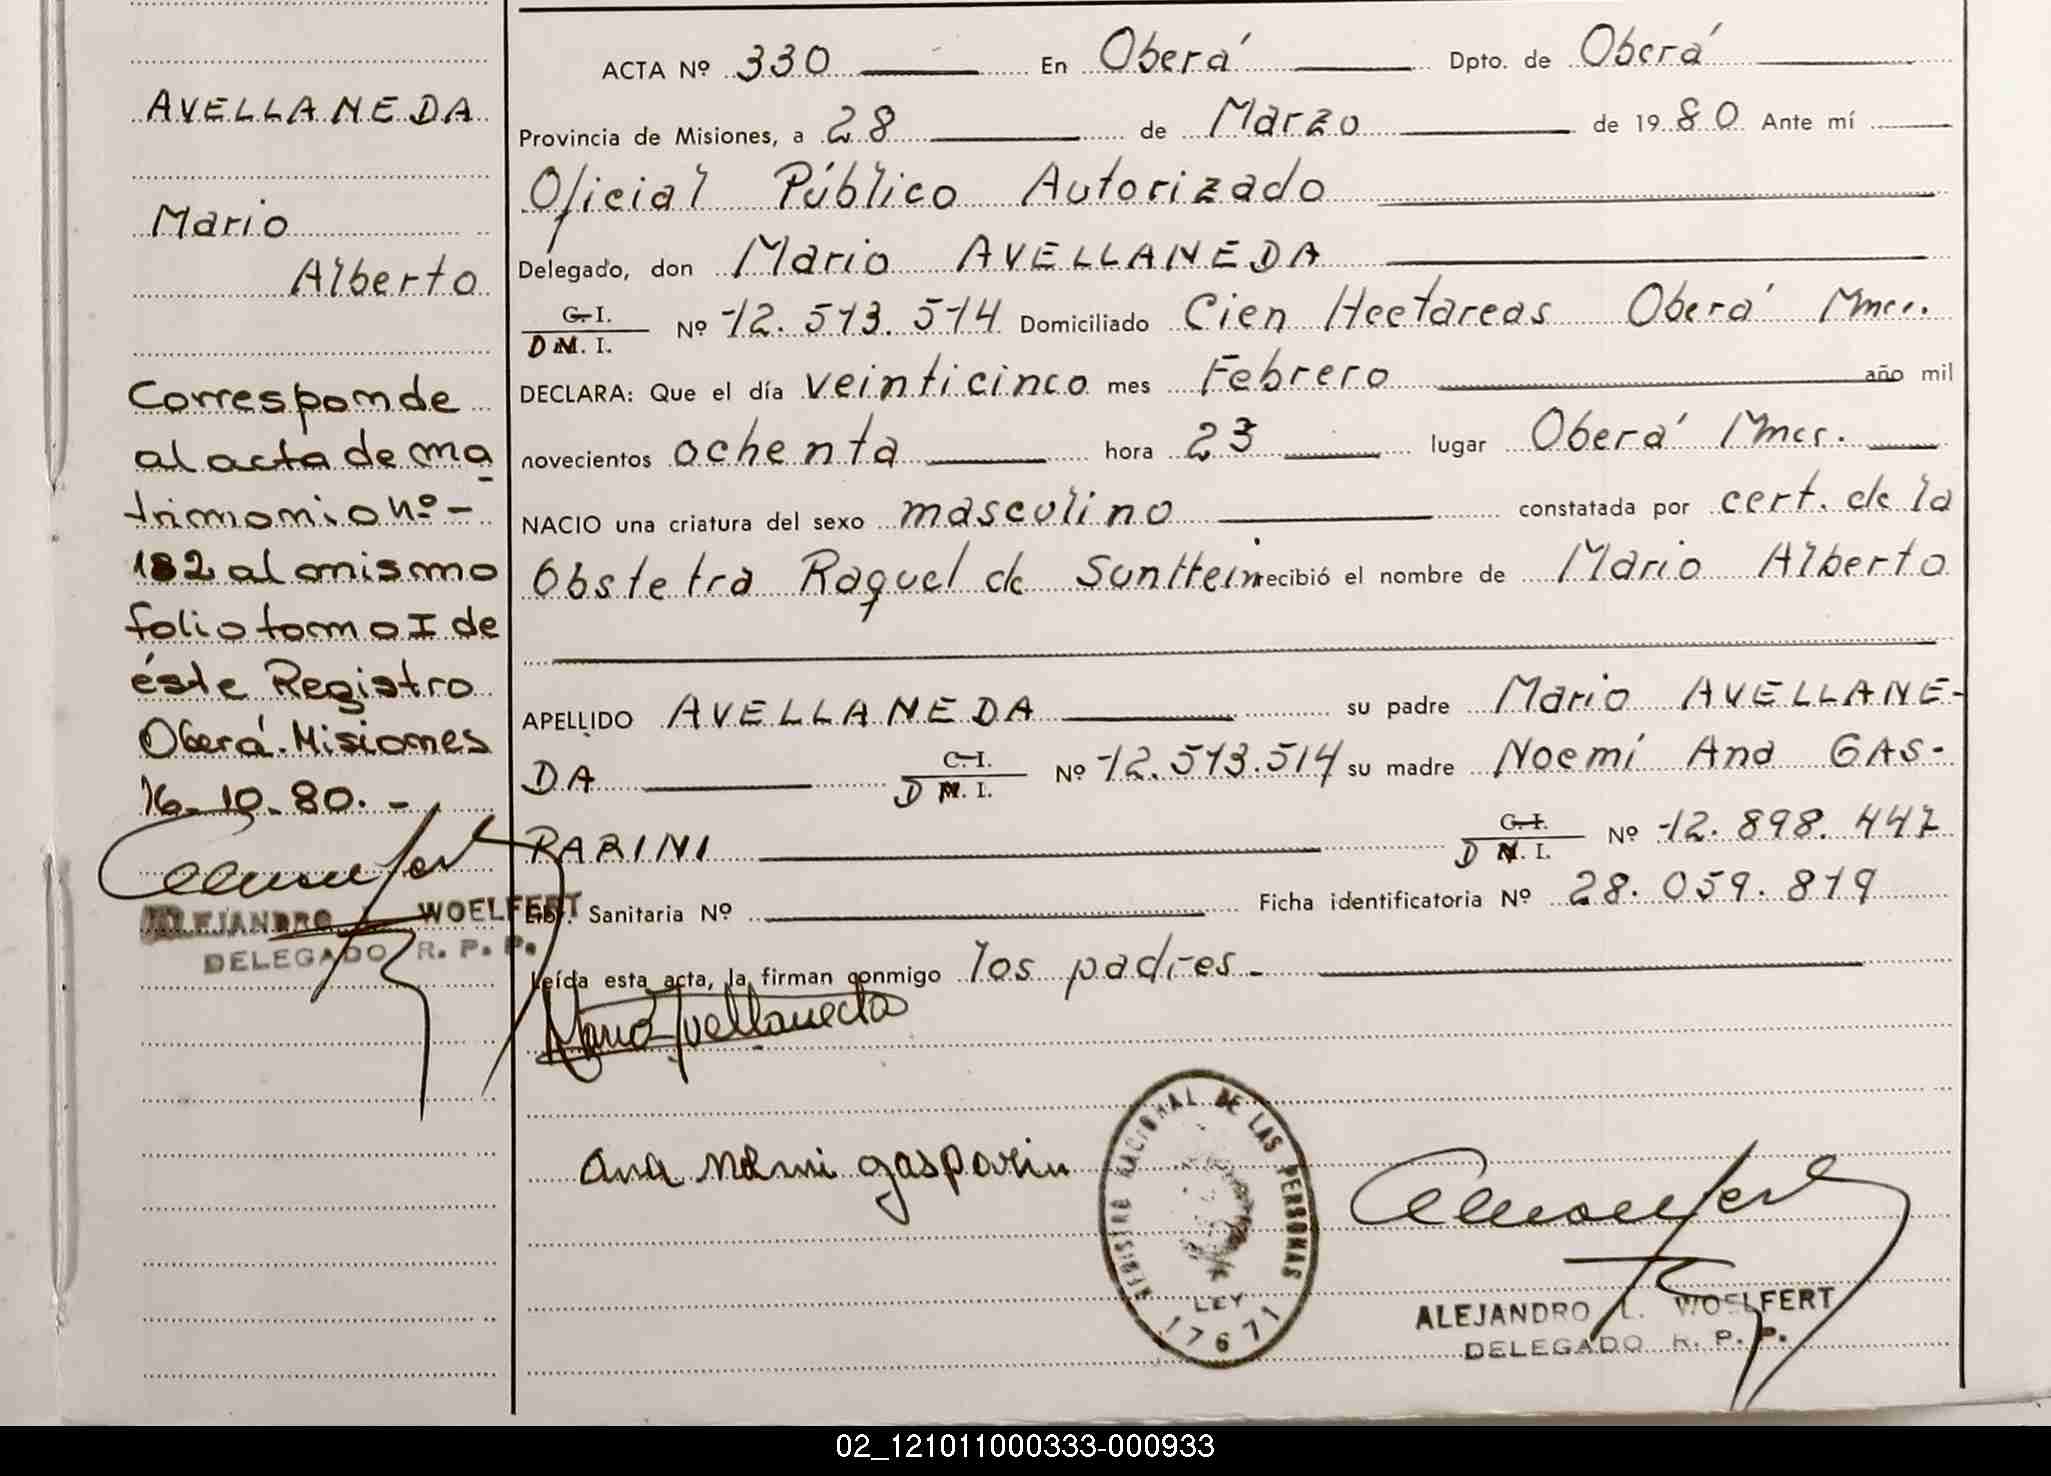 AVELLANEDA
Mario
Alberto
Corresponde
al acta de ma
trimonio nº-
182 al mismo
folio tomo I de
éste Registro
Oberá.Misiones
16-10-80.-
ALEJANDRO WOELFERT
DELEGADO R. P. P.
ACTA Nº 330 En Oberá Dpto. de Oberá
Provincia de Misiones, a 28 de Marzo de 1980 Ante mí
Oficial Público Autorizado
Delegado, don Mario AVELLANEDA
C. I.
D M. I. Nº 12.513.514 Domiciliado Cien Hectareas Oberá Mnes.
DECLARA: Que el día veinticinco mes Febrero año mil
novecientos ochenta hora 23 lugar Oberá Mnes.
NACIO una criatura del sexo masculino constatada por cert. de la
Obstetra Raquel de recibió el nombre de Mario Alberto
APELLIDO AVELLANEDA su padre Mario AVELLANE-
DA C. I. D M. I. Nº 12.513.514 su madre Noemí Ana GAS-
PARINI C. I. D M. I. Nº 12.898.447
Lib. Sanitaria Nº Ficha identificatoria Nº 28.059.819
Leída esta acta, la firman conmigo los padres.-
Mario Avellaneda
Ana Noemi gasparin
REGISTRO NACIONAL DE LAS PERSONAS
LEY
17671
ALEJANDRO L. WOELFERT
DELEGADO R. P. P.
02_121011000333-000933